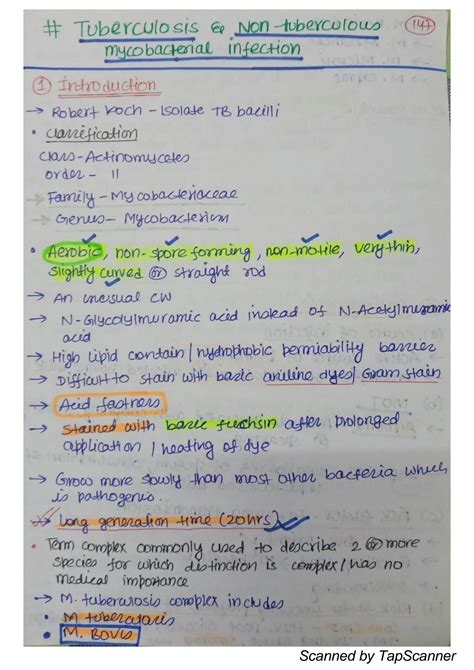 # Tuberculosis & Non-tuberculous
mycobacterial infection
147
① Introduction
→ Robert Koch - Isolate TB bacilli
• Classification
Class - Actinomycetes
order - 11
→ Family - Mycobacteriaceae
→ Genus - Mycobacterium
• Aerobic, non-spore forming, non-motile, very thin,
slightly curved or straight rod
→ An unusual CW
→ N-Glycolylmuramic acid instead of N-Acetylmuramic
acid
→ High lipid contain / hydrophobic permiability barrier
→ Difficult to stain with basic aniline dyes / Gram stain
→ Acid fastness
→ Stained with basic fuchsin after prolonged
application / heating of dye
→ Grow more slowly than most other bacteria which
is pathogenic.
→ Long generation time (20hrs)
• Term complex commonly used to describe 2 or more
species for which distinction is complex / has no
medical importance
→ M. tuberculosis complex includes
• M tuberculosis
• M. Bovis
Scanned by TapScanner